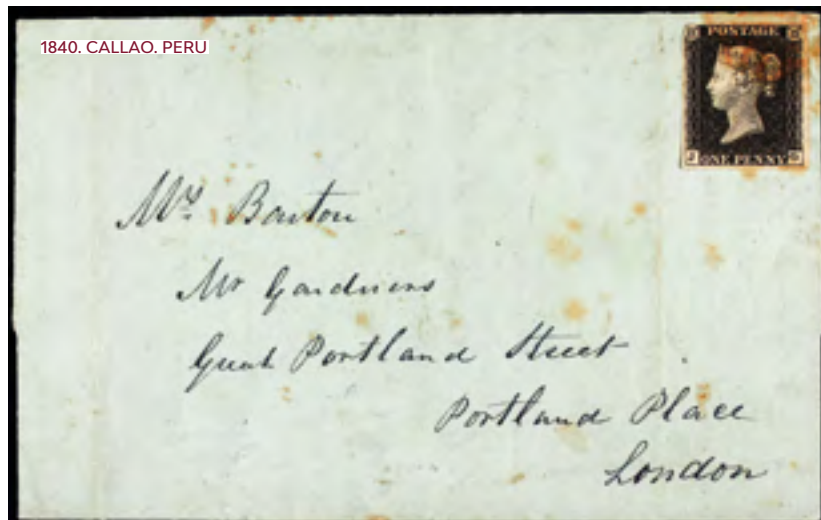 1840. CALLAO. PERU
POSTAGE
ONE PENNY
Mrs Barton
Mr Gardners
Great Portland Street
Portland Place
London